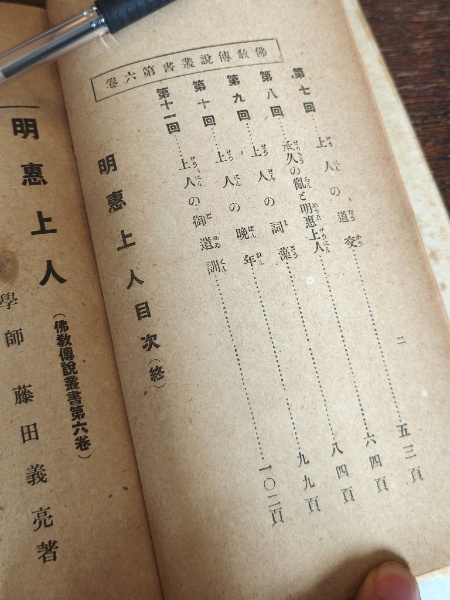 佛教傳說叢書第六卷
第七回……上人の道交……五三頁
第八回……承久の亂と明惠上人……六四頁
第九回……上人の詞藻……八四頁
第十回……上人の晩年……九九頁
第十一回……上人の御遺訓……一〇二頁
明惠上人目次（終）
二
明惠上人
（佛教傳說叢書第六卷）
學師 藤田義亮著